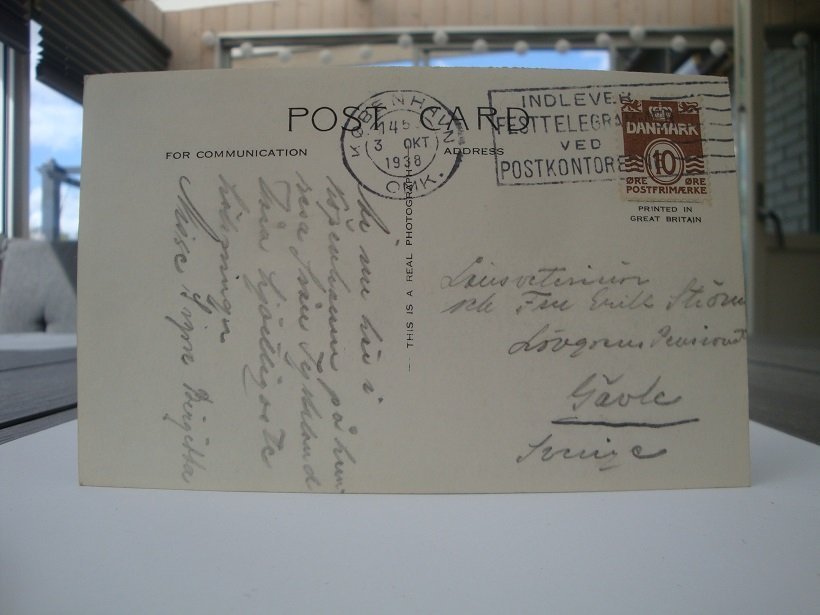 POST CARD
FOR COMMUNICATION
ADDRESS
KØBENHAVN
14
3 OKT
1938
OMK.
INDLEVER
FESTTELEGRA
VED
POSTKONTORE
DANMARK
10
ØRE ØRE
POSTFRIMÆRKE
PRINTED IN
GREAT BRITAIN
THIS IS A REAL PHOTOGRAPH
nu här i
Köpenhamn på hem
resa från Tyskland
hjärtligaste
hälsningar
Birgitta
Länsveterinär
och Fru Erik Ström
Lövgrens Pensionat
Gävle
Sverige